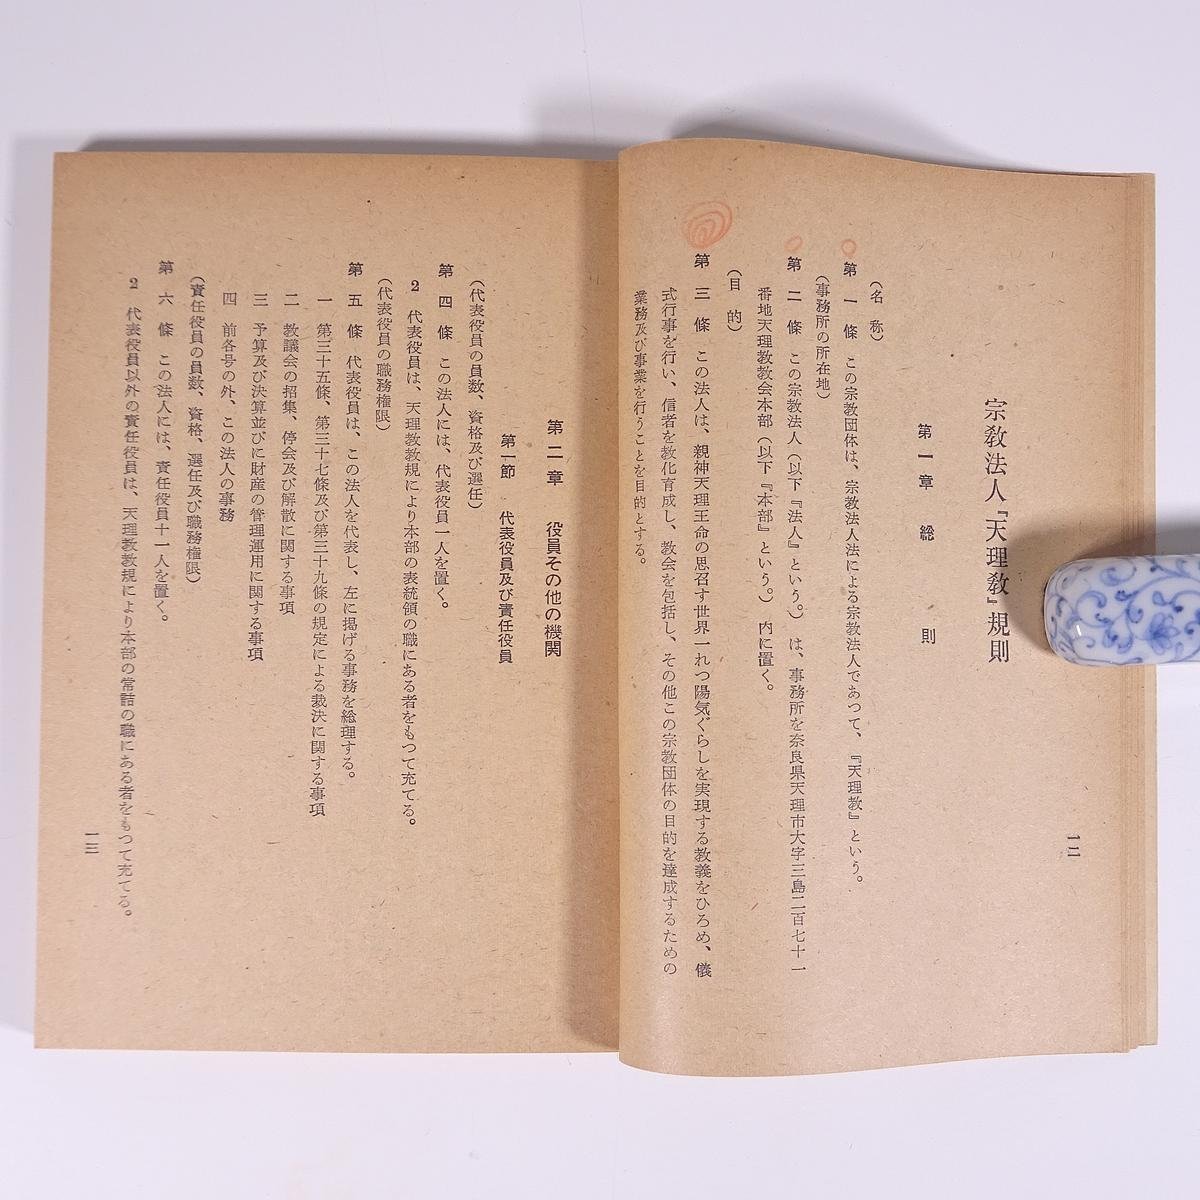 宗教法人『天理教』規則
第一章　総　則
（名　称）
第一條　この宗教団体は、宗教法人法による宗教法人であつて、『天理教』という。
（事務所の所在地）
第二條　この宗教法人（以下『法人』という。）は、事務所を奈良県天理市大字三島二百七十一
番地天理教教会本部（以下『本部』という。）内に置く。
（目　的）
第三條　この法人は、親神天理王命の思召す世界一れつ陽気ぐらしを実現する教義をひろめ、儀
式行事を行い、信者を教化育成し、教会を包括し、その他この宗教団体の目的を達成するための
業務及び事業を行うことを目的とする。
一二
第二章　役員その他の機関
第一節　代表役員及び責任役員
（代表役員の員数、資格及び選任）
第四條　この法人には、代表役員一人を置く。
2　代表役員は、天理教教規により本部の表統領の職にある者をもつて充てる。
（代表役員の職務権限）
第五條　代表役員は、この法人を代表し、左に掲げる事務を総理する。
一　第三十五條、第三十七條及び第三十九條の規定による裁決に関する事項
二　教議会の招集、停会及び解散に関する事項
三　予算及び決算並びに財産の管理運用に関する事項
四　前各号の外、この法人の事務
（責任役員の員数、資格、選任及び職務権限）
第六條　この法人には、責任役員十一人を置く。
2　代表役員以外の責任役員は、天理教教規により本部の常詰の職にある者をもつて充てる。
一三